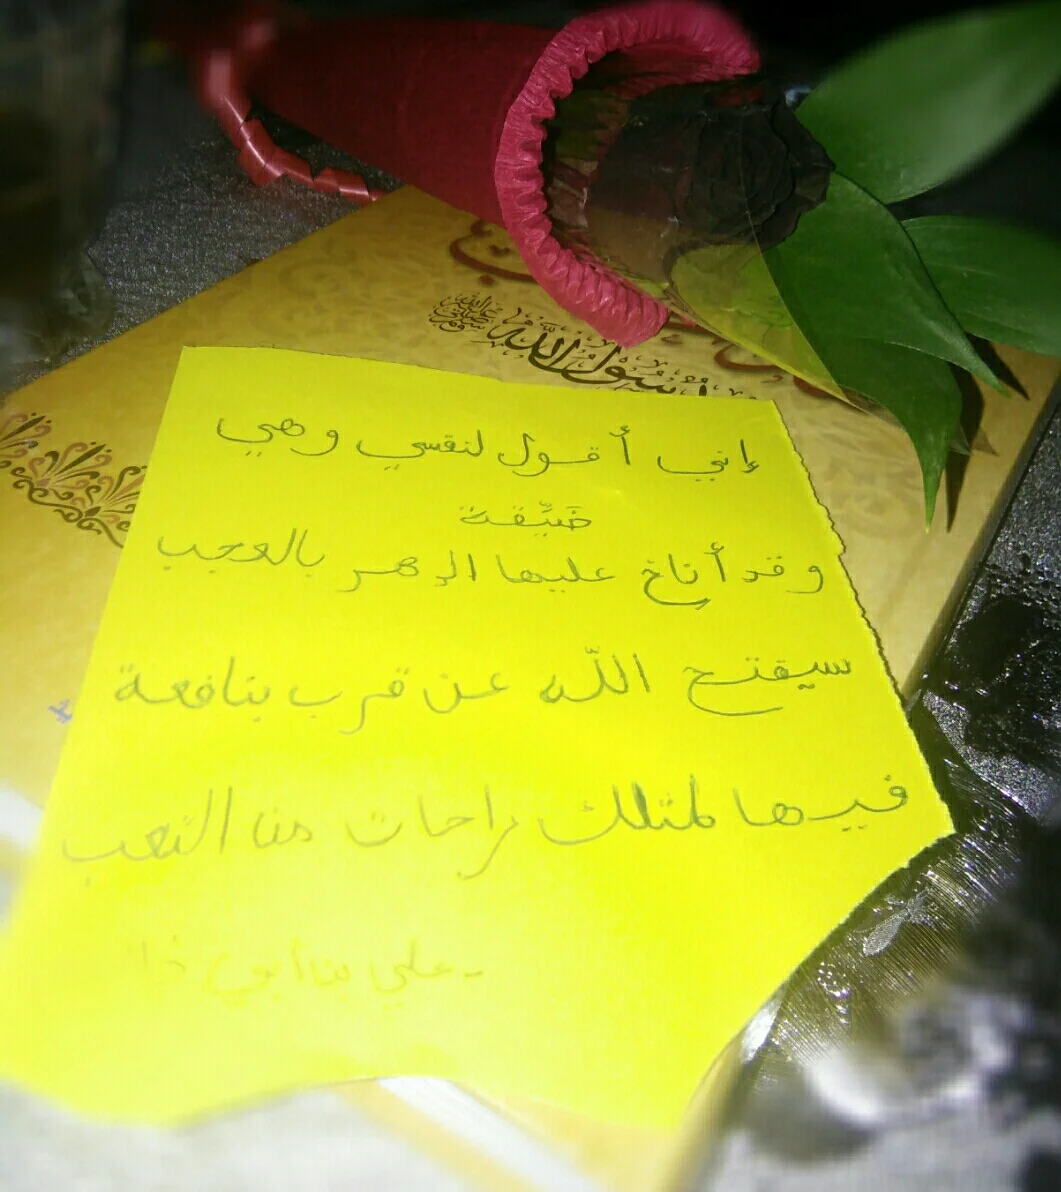 رسول الله
إني أقول لنفسي وهي
ضَيِّقة
وقد أناخ عليها الدهر بالعجب
سيفتح الله عن قرب بنافعة
فيها لمثلك راحات من التعب
- علي بن أبي